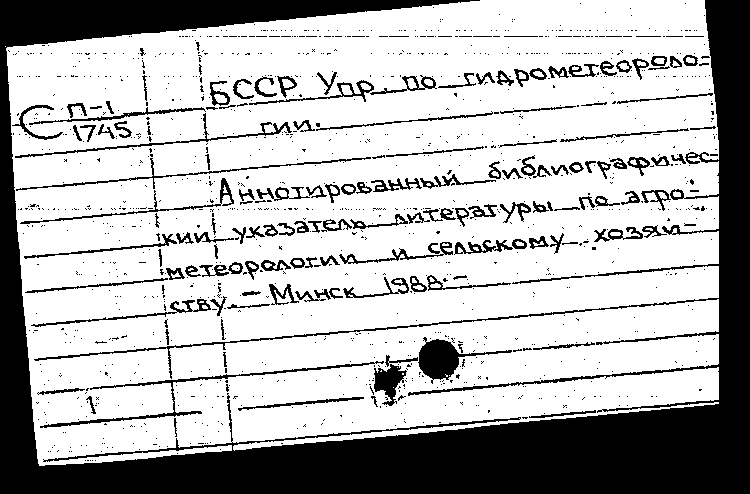 С П-1
1745
БССР. Упр. по гидрометеороло-
гии.
Аннотированный библиографичес-
кий указатель литературы по агро-
метеорологии и сельскому хозяй-
ству. – Минск 1988. –
1